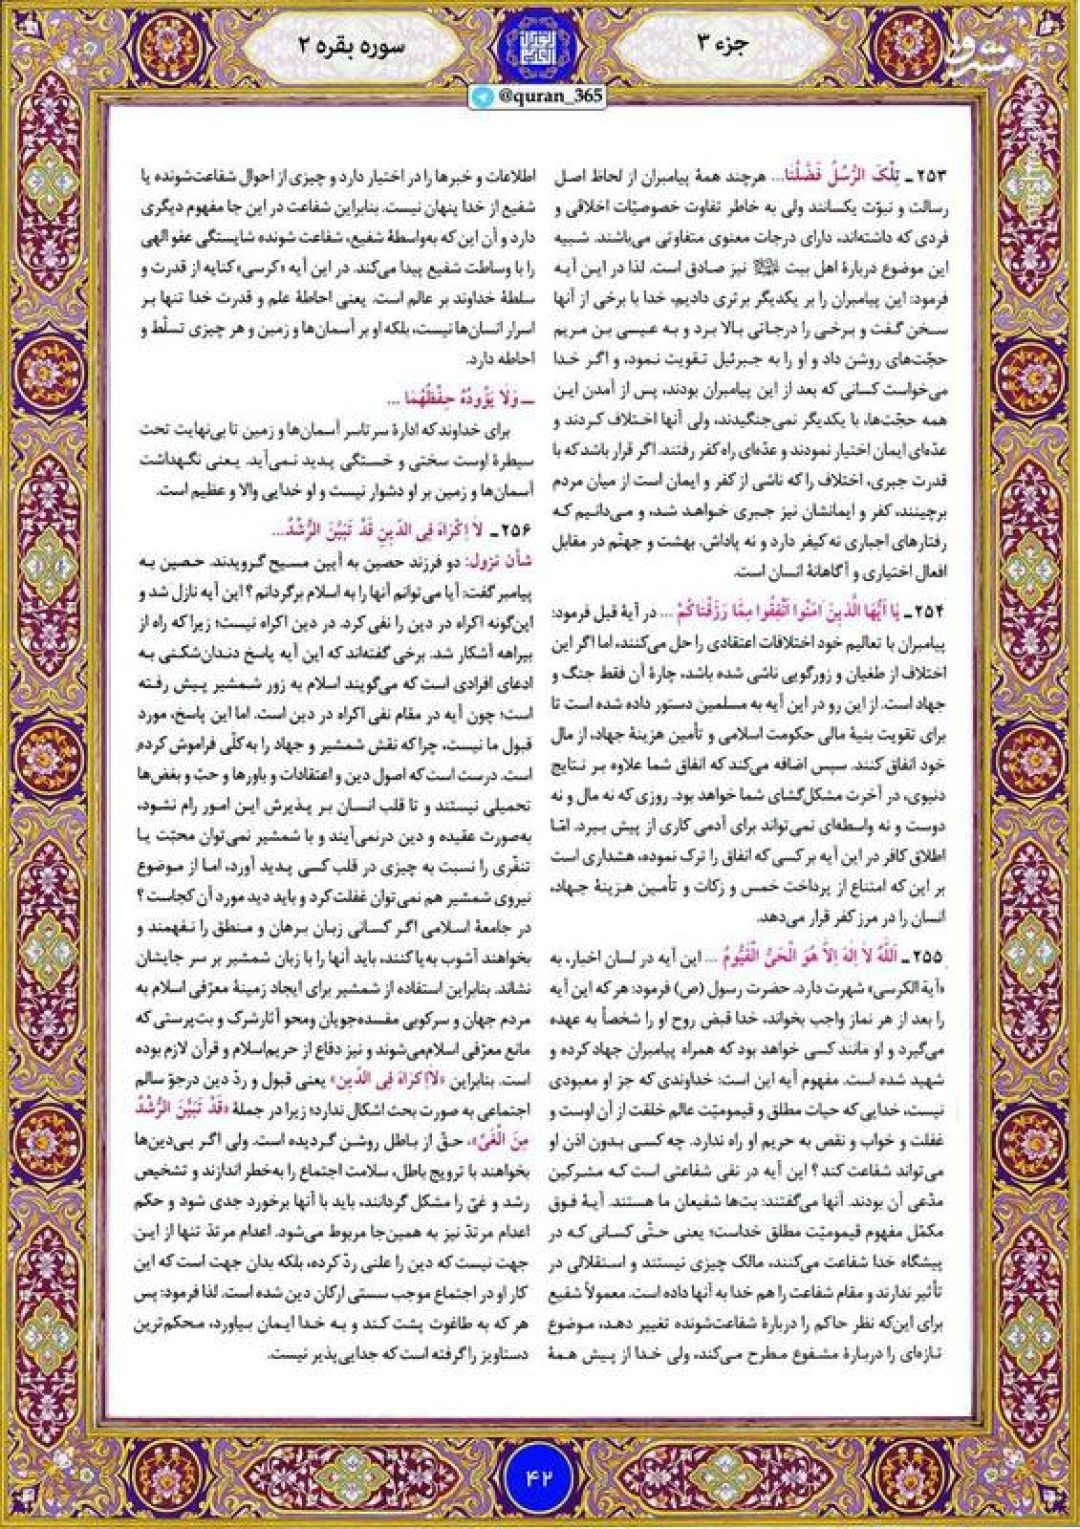 جزء ۳
سوره بقره ۲
@quran_365
۲۵۳ـ تِلْکَ الرُّسُلُ فَضَّلْنَا... هرچند همهٔ پیامبران از لحاظ اصل
رسالت و نبوّت یکسانند ولی به خاطر تفاوت خصوصیّات اخلاقی و
فردی که داشته‌اند، دارای درجات معنوی متفاوتی می‌باشند. شبیه
این موضوع دربارهٔ اهل بیت نیز صادق است. لذا در این آیه
فرمود: این پیامبران را بر یکدیگر برتری دادیم، خدا با برخی از آنها
سخن گفت و برخی را درجاتی بالا برد و به عیسی بن مریم
حجّت‌های روشن داد و او را به جبرئیل تقویت نمود، و اگر خدا
می‌خواست کسانی که بعد از این پیامبران بودند، پس از آمدن این
همه حجّت‌ها، با یکدیگر نمی‌جنگیدند، ولی آنها اختلاف کردند و
عدّه‌ای ایمان اختیار نمودند و عدّه‌ای راه کفر رفتند. اگر قرار باشد که با
قدرت جبری، اختلاف را که ناشی از کفر و ایمان است از میان مردم
برچینند، کفر و ایمانشان نیز جبری خواهد شد، و می‌دانیم که
رفتارهای اجباری نه کیفر دارد و نه پاداش، بهشت و جهنّم در مقابل
افعال اختیاری و آگاهانهٔ انسان است.
۲۵۴ـ یَا اَیُّهَا الَّذِینَ امَنُوا اَنْفِقُوا مِمَّا رَزَقْنَاکُمْ ... در آیهٔ قبل فرمود:
پیامبران با تعالیم خود اختلافات اعتقادی را حل می‌کنند، اما اگر این
اختلاف از طغیان و زورگویی ناشی شده باشد، چارهٔ آن فقط جنگ و
جهاد است. از این رو در این آیه به مسلمین دستور داده شده است تا
برای تقویت بنیهٔ مالی حکومت اسلامی و تأمین هزینهٔ جهاد، از مال
خود انفاق کنند. سپس اضافه می‌کند که انفاق شما علاوه بر نتایج
دنیوی، در آخرت مشکل‌گشای شما خواهد بود. روزی که نه مال و نه
دوست و نه واسطه‌ای نمی‌تواند برای آدمی کاری از پیش ببرد. امّا
اطلاق کافر در این آیه بر کسی که انفاق را ترک نموده، هشداری است
بر این که امتناع از پرداخت خمس و زکات و تأمین هزینهٔ جهاد،
انسان را در مرز کفر قرار می‌دهد.
۲۵۵ـ اَللّٰهُ لاَ اِلٰهَ اِلاَّ هُوَ الْحَیُّ الْقَیُّومُ ... این آیه در لسان اخبار، به
«آیة الکرسی» شهرت دارد. حضرت رسول (ص) فرمود: هر که این آیه
را بعد از هر نماز واجب بخواند، خدا قبض روح او را شخصاً به عهده
می‌گیرد و او مانند کسی خواهد بود که همراه پیامبران جهاد کرده و
شهید شده است. مفهوم آیه این است: خداوندی که جز او معبودی
نیست، خدایی که حیات مطلق و قیمومیّت عالم خلقت از آن اوست و
غفلت و خواب و نقص به حریم او راه ندارد. چه کسی بدون اذن او
می‌تواند شفاعت کند؟ این آیه در نفی شفاعتی است که مشرکین
مدّعی آن بودند. آنها می‌گفتند: بت‌ها شفیعان ما هستند. آیهٔ فوق
مکمّل مفهوم قیمومیّت مطلق خداست؛ یعنی حتّی کسانی که در
پیشگاه خدا شفاعت می‌کنند، مالک چیزی نیستند و استقلالی در
تأثیر ندارند و مقام شفاعت را هم خدا به آنها داده است. معمولاً شفیع
برای این‌که نظر حاکم را دربارهٔ شفاعت‌شونده تغییر دهد، موضوع
تازه‌ای را دربارهٔ مشفوع مطرح می‌کند، ولی خدا از پیش همهٔ
اطلاعات و خبرها را در اختیار دارد و چیزی از احوال شفاعت‌شونده یا
شفیع از خدا پنهان نیست. بنابراین شفاعت در این جا مفهوم دیگری
دارد و آن این که به‌واسطهٔ شفیع، شفاعت شونده شایستگی عفو الهی
را با وساطت شفیع پیدا می‌کند. در این آیه «کرسی» کنایه از قدرت و
سلطهٔ خداوند بر عالم است. یعنی احاطهٔ علم و قدرت خدا تنها بر
اسرار انسان‌ها نیست، بلکه او بر آسمان‌ها و زمین و هر چیزی تسلّط و
احاطه دارد.
ـ وَلاَ یَؤُودُهُ حِفْظُهُمَا ...
برای خداوند که ادارهٔ سرتاسر آسمان‌ها و زمین تا بی‌نهایت تحت
سیطرهٔ اوست سختی و خستگی پدید نمی‌آید. یعنی نگهداشت
آسمان‌ها و زمین بر او دشوار نیست و او خدایی والا و عظیم است.
۲۵۶ـ لاَ اِکْرَاهَ فِی الدّینِ قَدْ تَبَیَّنَ الرُّشْدُ...
شأن نزول: دو فرزند حصین به آیین مسیح گرویدند. حصین به
پیامبر گفت: آیا می‌توانم آنها را به اسلام برگردانم؟ این آیه نازل شد و
این‌گونه اکراه در دین را نفی کرد. در دین اکراه نیست؛ زیرا که راه از
بیراهه آشکار شد. برخی گفته‌اند که این آیه پاسخ دندان‌شکنی به
ادعای افرادی است که می‌گویند اسلام به زور شمشیر پیش رفته
است؛ چون آیه در مقام نفی اکراه در دین است. اما این پاسخ، مورد
قبول ما نیست، چرا که نقش شمشیر و جهاد را به‌کلّی فراموش کرده
است. درست است که اصول دین و اعتقادات و باورها و حبّ و بغض‌ها
تحمیلی نیستند و تا قلب انسان بر پذیرش این امور رام نشود،
به‌صورت عقیده و دین درنمی‌آیند و با شمشیر نمی‌توان محبّت یا
تنفّری را نسبت به چیزی در قلب کسی پدید آورد، اما از موضوع
نیروی شمشیر هم نمی‌توان غفلت کرد و باید دید مورد آن کجاست؟
در جامعهٔ اسلامی اگر کسانی زبان برهان و منطق را نفهمند و
بخواهند آشوب به‌پا کنند، باید آنها را با زبان شمشیر بر سر جایشان
نشاند. بنابراین استفاده از شمشیر برای ایجاد زمینهٔ معرّفی اسلام به
مردم جهان و سرکوبی مفسده‌جویان و محو آثار شرک و بت‌پرستی که
مانع معرّفی اسلام می‌شوند و نیز دفاع از حریم اسلام و قرآن لازم بوده
است. بنابراین «لاَ اِکْرَاهَ فِی الدّینِ» یعنی قبول و ردّ دین در جوّ سالم
اجتماعی به صورت بحث اشکال ندارد؛ زیرا در جملهٔ «قَدْ تَبَیَّنَ الرُّشْدُ
مِنَ الْغَیِّ»، حقّ از باطل روشن گردیده است. ولی اگر بی‌دین‌ها
بخواهند با ترویج باطل، سلامت اجتماع را به‌خطر اندازند و تشخیص
رشد و غیّ را مشکل گردانند، باید با آنها برخورد جدی شود و حکم
اعدام مرتدّ نیز به همین‌جا مربوط می‌شود. اعدام مرتدّ تنها از این
جهت نیست که دین را علنی ردّ کرده، بلکه بدان جهت است که این
کار او در اجتماع موجب سستی ارکان دین شده است. لذا فرمود: پس
هر که به طاغوت پشت کند و به خدا ایمان بیاورد، محکم‌ترین
دستاویز را گرفته است که جدایی‌پذیر نیست.
۴۲